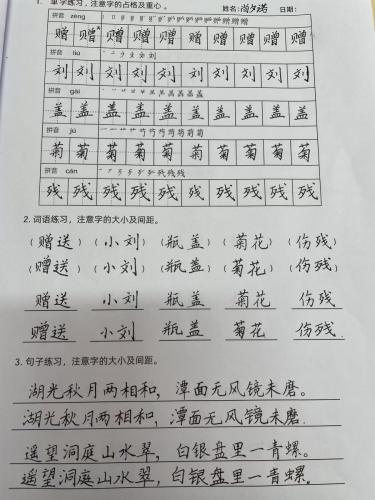 1. 单字练习，注意字的占格及重心。 姓名: 日期:
拼音 zèng
赠 赠 赠 赠 赠 赠 赠 赠 赠
拼音 liú
刘 刘 刘 刘 刘 刘 刘 刘 刘
拼音 gài
盖 盖 盖 盖 盖 盖 盖 盖 盖
拼音 jú
菊 菊 菊 菊 菊 菊 菊 菊 菊
拼音 cán
残 残 残 残 残 残 残 残 残
2. 词语练习，注意字的大小及间距。
(赠送) (小刘) (瓶盖) (菊花) (伤残)
(赠送) (小刘) (瓶盖) (菊花) (伤残)
赠送 小刘 瓶盖 菊花 伤残
赠送 小刘 瓶盖 菊花 伤残
3. 句子练习，注意字的大小及间距。
湖光秋月两相和，潭面无风镜未磨。
湖光秋月两相和，潭面无风镜未磨.
遥望洞庭山水翠，白银盘里一青螺。
遥望洞庭山水翠，白银盘里一青螺。